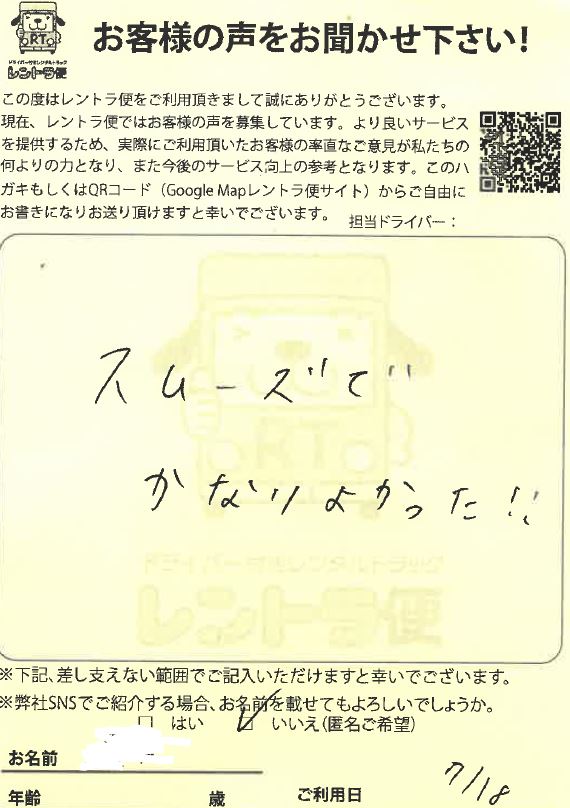 お客様の声をお聞かせ下さい!
RT
ドライバー付きレンタルトラック
レントラ便
この度はレントラ便をご利用頂きまして誠にありがとうございます。
現在、レントラ便ではお客様の声を募集しています。より良いサービス
を提供するため、実際にご利用頂いたお客様の率直なご意見が私たちの
何よりの力となり、また今後のサービス向上の参考となります。このハ
ガキもしくはQRコード（Google Mapレントラ便サイト）からご自由に
お書きになりお送り頂けますと幸いでございます。
担当ドライバー：
スムーズで
かなりよかった!!
RT
ドライバー付きレンタルトラック
レントラ便
※下記、差し支えない範囲でご記入いただけますと幸いでございます。
※弊社SNSでご紹介する場合、お名前を載せてもよろしいでしょうか。
□ はい ☑ いいえ（匿名ご希望）
お名前
年齢 歳 ご利用日 7/18